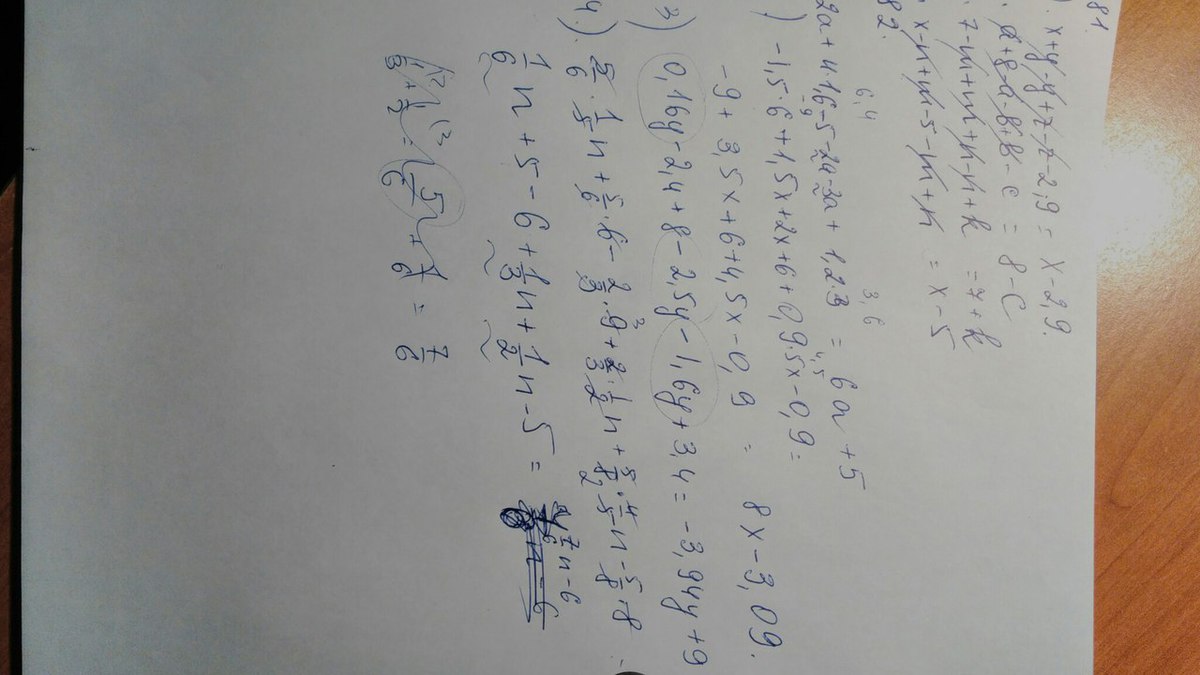 81.
). x+y-y+z-z-2,9 = x-2,9.
. a+8-a-b+b-c = 8-c
. 7-m+m+n-n+k = 7+k
. x-n+m-5-m+n = x-5
82.
6,4 3,6
2a+4·1,6-5-2a-3a+1,2·3 = 6a+5
-9 4,5
) -1,5·6+1,5x+2x+6+0,9·5x-0,9=
-9+3,5x+6+4,5x-0,9 = 8x-3,09.
3) 0,16y-2,4+8-2,5y-1,6y+3,4=-3,94y+9
4). 5/6·1/5n+5/6·6-2/3·9+2/3·1/2n+5/8·4/5n-5/8·8
1/6n+5-6+1/3n+1/2n-5= 7/6n-6
1/3+1/2=5/6+1/6=7/6